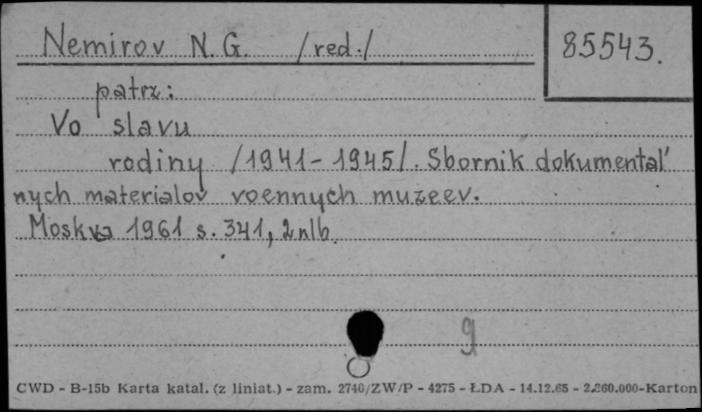 Nemirov N.G. /red./
85543.
patrz:
Vo slavu
rodiny /1941-1945/. Sbornik dokumental'
nych materialov voennych muzeev.
Moskva 1961 s. 341, 2 nlb.
g
CWD - B-15b Karta katal. (z liniat.) - zam. 2740/ZW/P - 4275 - ŁDA - 14.12.65 - 2.260.000-Karton